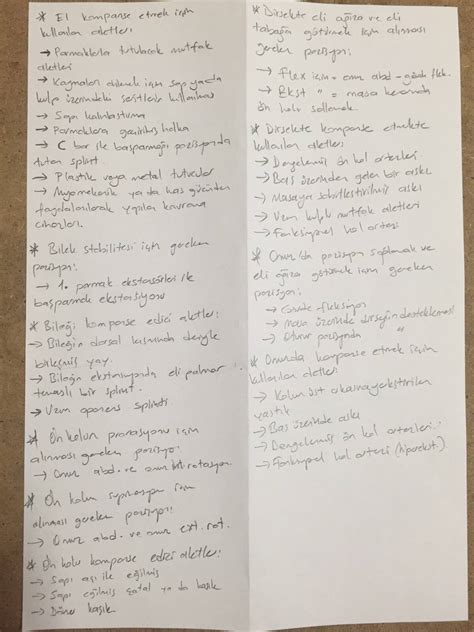 * El kompanse etmek için
kullanılan aletler:
→ Parmaklarla tutulacak mutfak
aletleri
→ Kaymaları önlemek için sap yada
kulp üzerindeki şeritlerin kullanılması
→ Sapı kalınlaştırma
→ Parmaklara geçirilmiş halka
→ C bar ile başparmağı pozisyonda
tutan splint
→ Plastik veya metal tutucular
→ Myomekanik ya da kas gücünden
faydalanılarak yapılan kavrama
cihazları.
* Bilek stabilitesi için gereken
pozisyon:
→ 1. parmak ekstansörleri ile
başparmak ekstansiyonu
* Bileği kompanse edici aletler:
→ Bileğin dorsal kısmında deriyle
birleşmiş yay.
→ Bileğin ekstansiyonda eli palmar
temaslı bir splint.
→ Uzun opponens splinti
* Ön kolun pronasyonu için
alınması gereken pozisyon:
→ Omuz abd. ve omuz int. rotasyon
* Ön kolun supinasyon için
alınması gereken pozisyon:
→ Omuz abd. ve omuz ext. rot.
* Ön kolu kompanse edici aletler:
→ Sapı açı ile eğilmiş
→ Sapı eğilmiş çatal ya da kaşık
→ Döner kaşık
* Dirsekte eli ağıza ve eli
tabağa götürmek için alınması
gereken pozisyon:
→ Flex için = omuz abd - gövde flek.
→ Ekst " = masa kenarında
ön kolu sallamak.
* Dirsekte kompanse etmekte
kullanılan aletler:
→ Dengelenmiş ön kol ortezleri
→ Baş üzerinden gelen bir askı
→ Masaya sabitleştirilmiş askı
→ Uzun kulplu mutfak aletleri
→ Fonksiyonel kol ortezi
* Omuz'da pozisyon sağlamak ve
eli ağıza götürmek için gereken
pozisyon:
→ Gövde fleksiyon
→ Masa üzerinde dirseğin desteklenmesi
→ Oturur pozisyonda "
* Omuzda kompanse etmek için
kullanılan aletler
→ Kolun üst arkasına yerleştirilen
yastık
→ Baş üzerinde askı
→ Dengelenmiş ön kol ortezleri.
→ Fonksiyonel kol ortezi (hiperekst.)